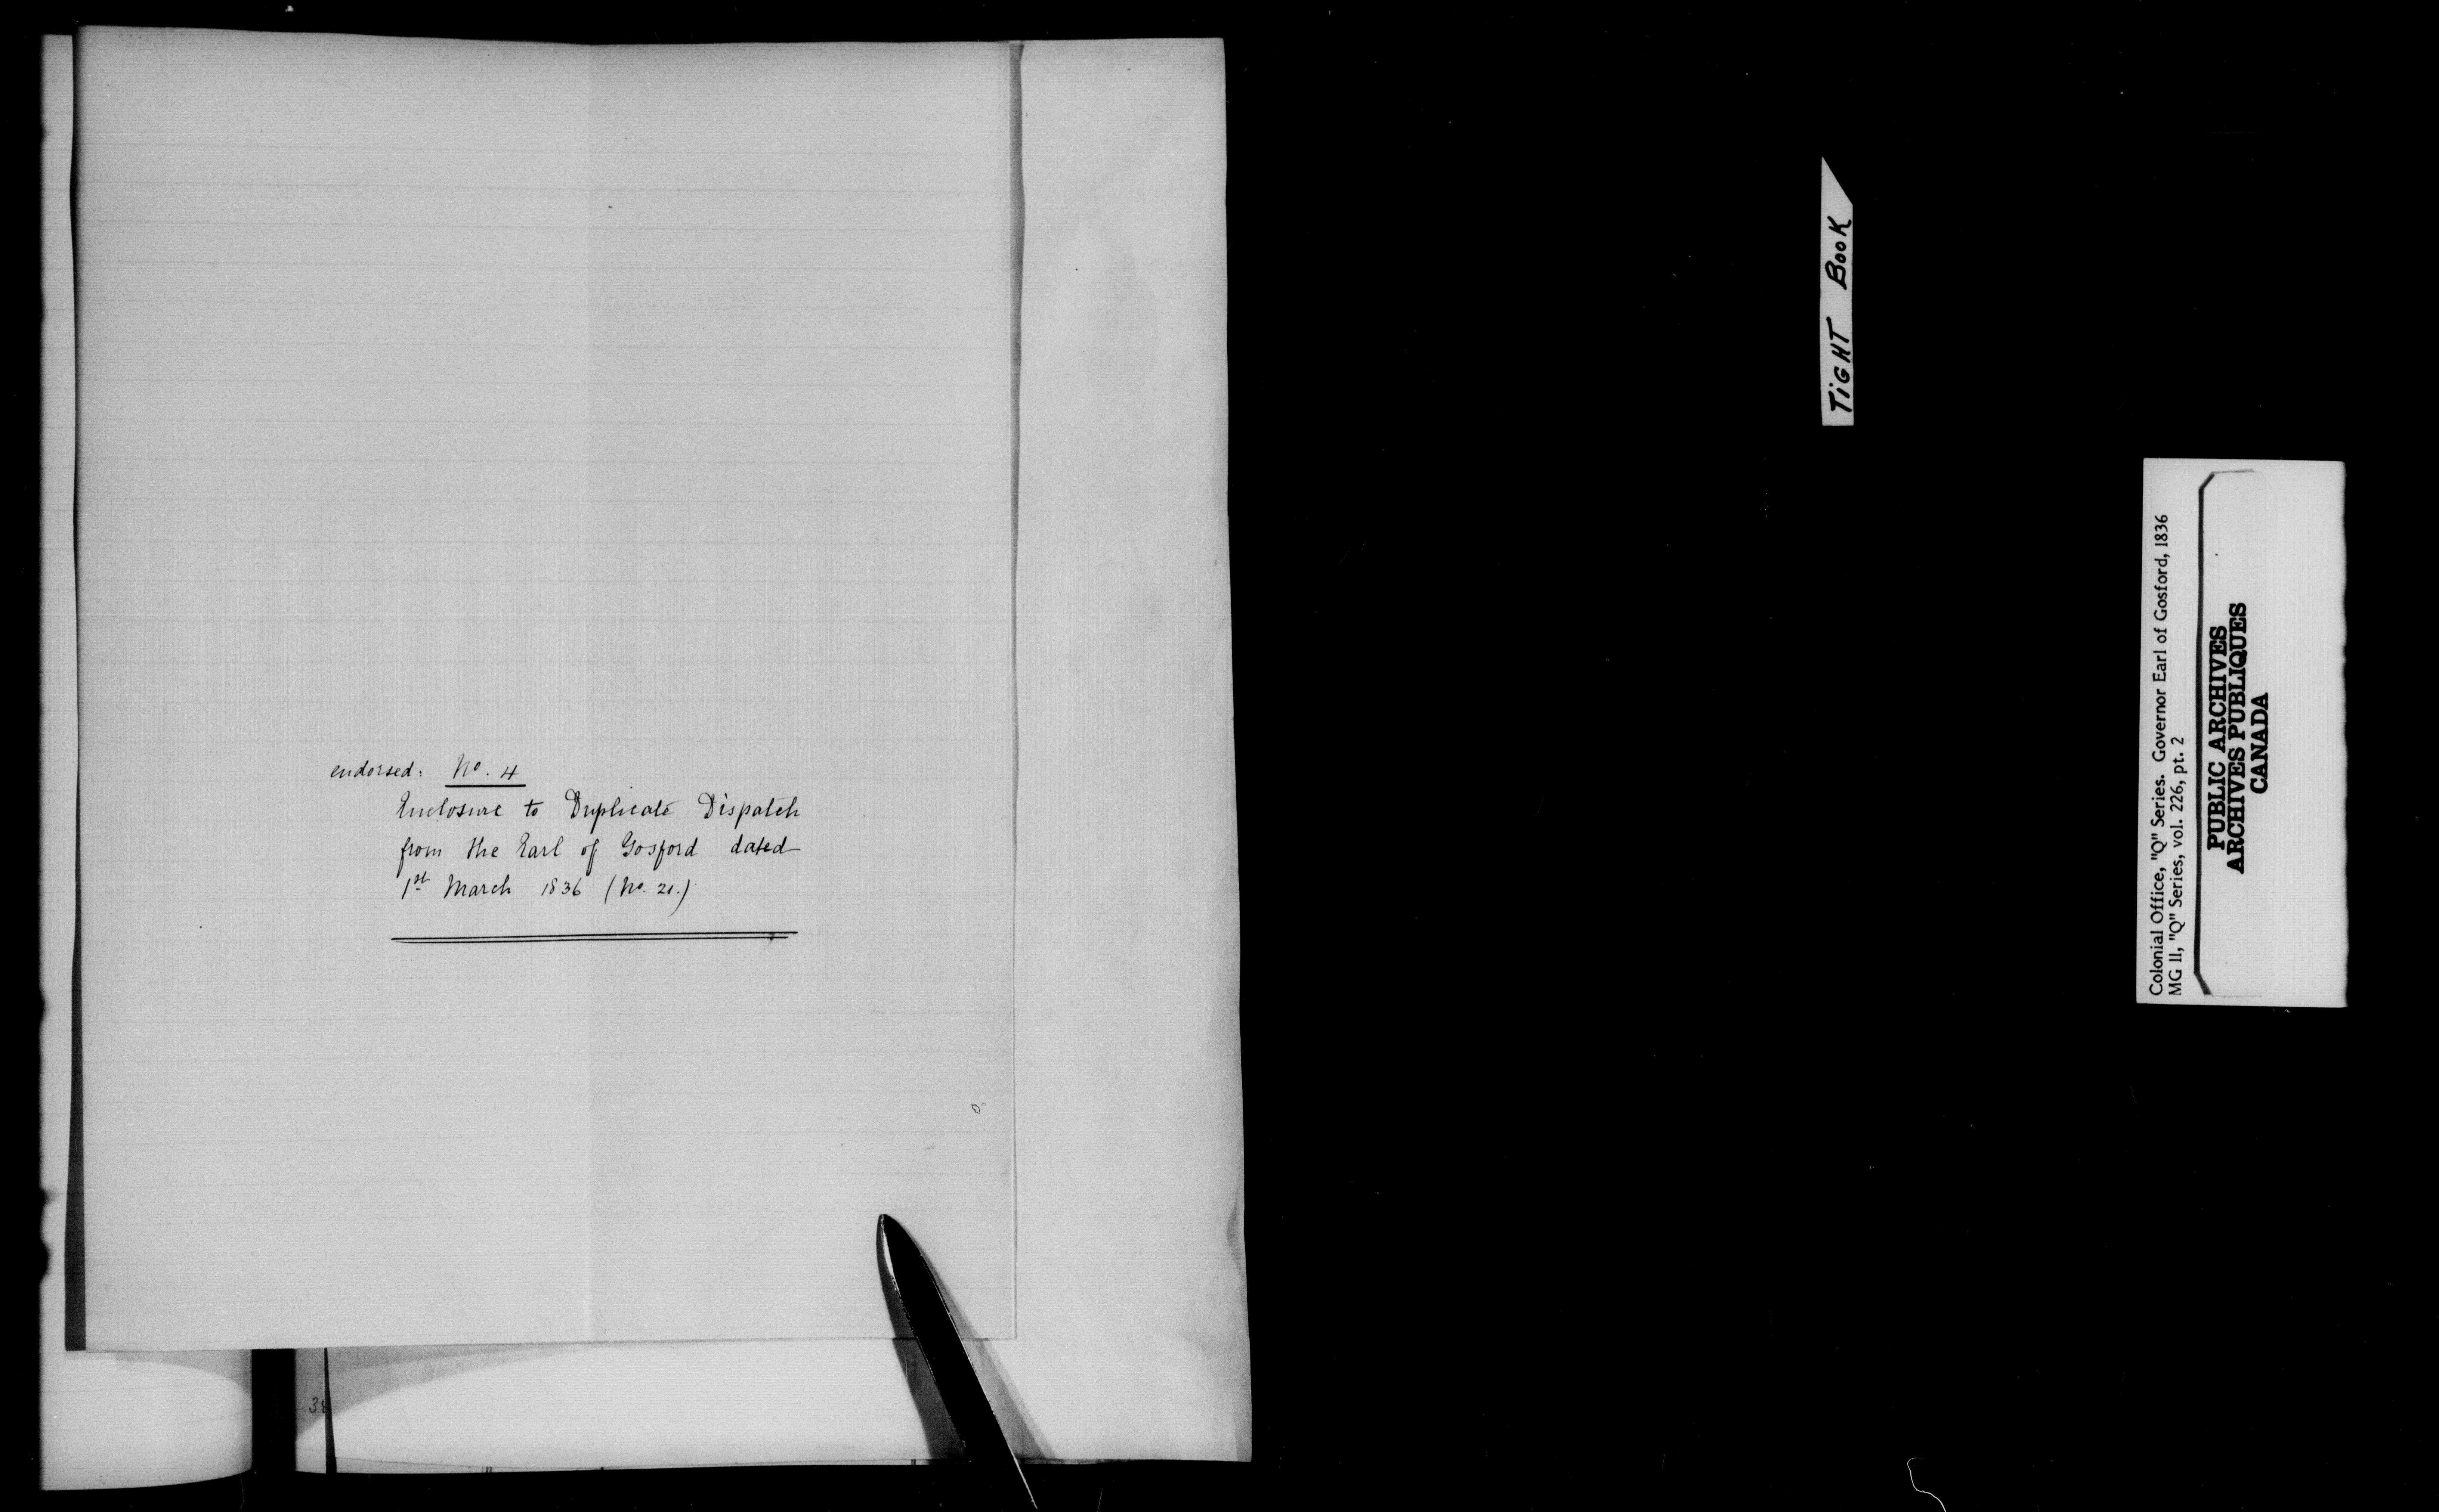 endorsed: No. 4
Enclosure to Duplicate Dispatch
from the Earl of Gosford dated
1st March 1836 (No. 21.)
TiGHT BOOK
Colonial Office, "Q" Series. Governor Earl of Gosford, 1836
MG 11, "Q" Series, vol. 226, pt. 2
PUBLIC ARCHIVES
ARCHIVES PUBLIQUES
CANADA